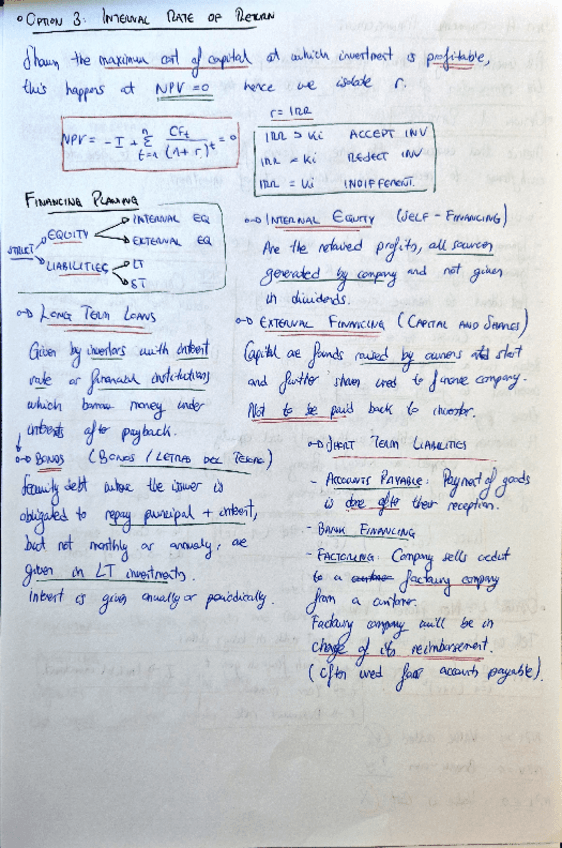 ° OPTION 3: INTERNAL RATE OF RETURN
Shows the maximum cost of capital at which investment is profitable,
this happens at NPV = 0 hence we isolate r.
r = IRR
NPV = -I + Σ CFt / (1+r)^t = 0
n
t=1
IRR > Ki ACCEPT INV
IRR < Ki REJECT INV
IRR = Ki INDIFFERENT.
FINANCING PLANNING
STRUCT
EQUITY
INTERNAL EQ
EXTERNAL EQ
LIABILITIES
LT
ST
INTERNAL EQUITY (SELF-FINANCING)
Are the retained profits, all sources
generated by company and not given
in dividends.
LONG TERM LOANS
Given by investors with interest
rate or financial institutions
which borrow money under
interests after payback.
EXTERNAL FINANCING (CAPITAL AND SHARES)
Capital are funds raised by owners at start
and further shares used to finance company.
Not to be paid back to investor.
BONDS (BONOS / LETRAS DEL TESORO)
Security debt where the issuer is
obligated to repay principal + interest,
but not monthly or annualy; are
given in LT investments.
Interest is given anually or periodically.
SHORT TERM LIABILITIES
- ACCOUNTS PAYABLE: Payment of goods
is done after their reception.
- BANK FINANCING
- FACTORING: Company sells credit
to a factoring company
from a customer
Factoring company will be in
charge of its reimbursement.
(Often used for accounts payable).